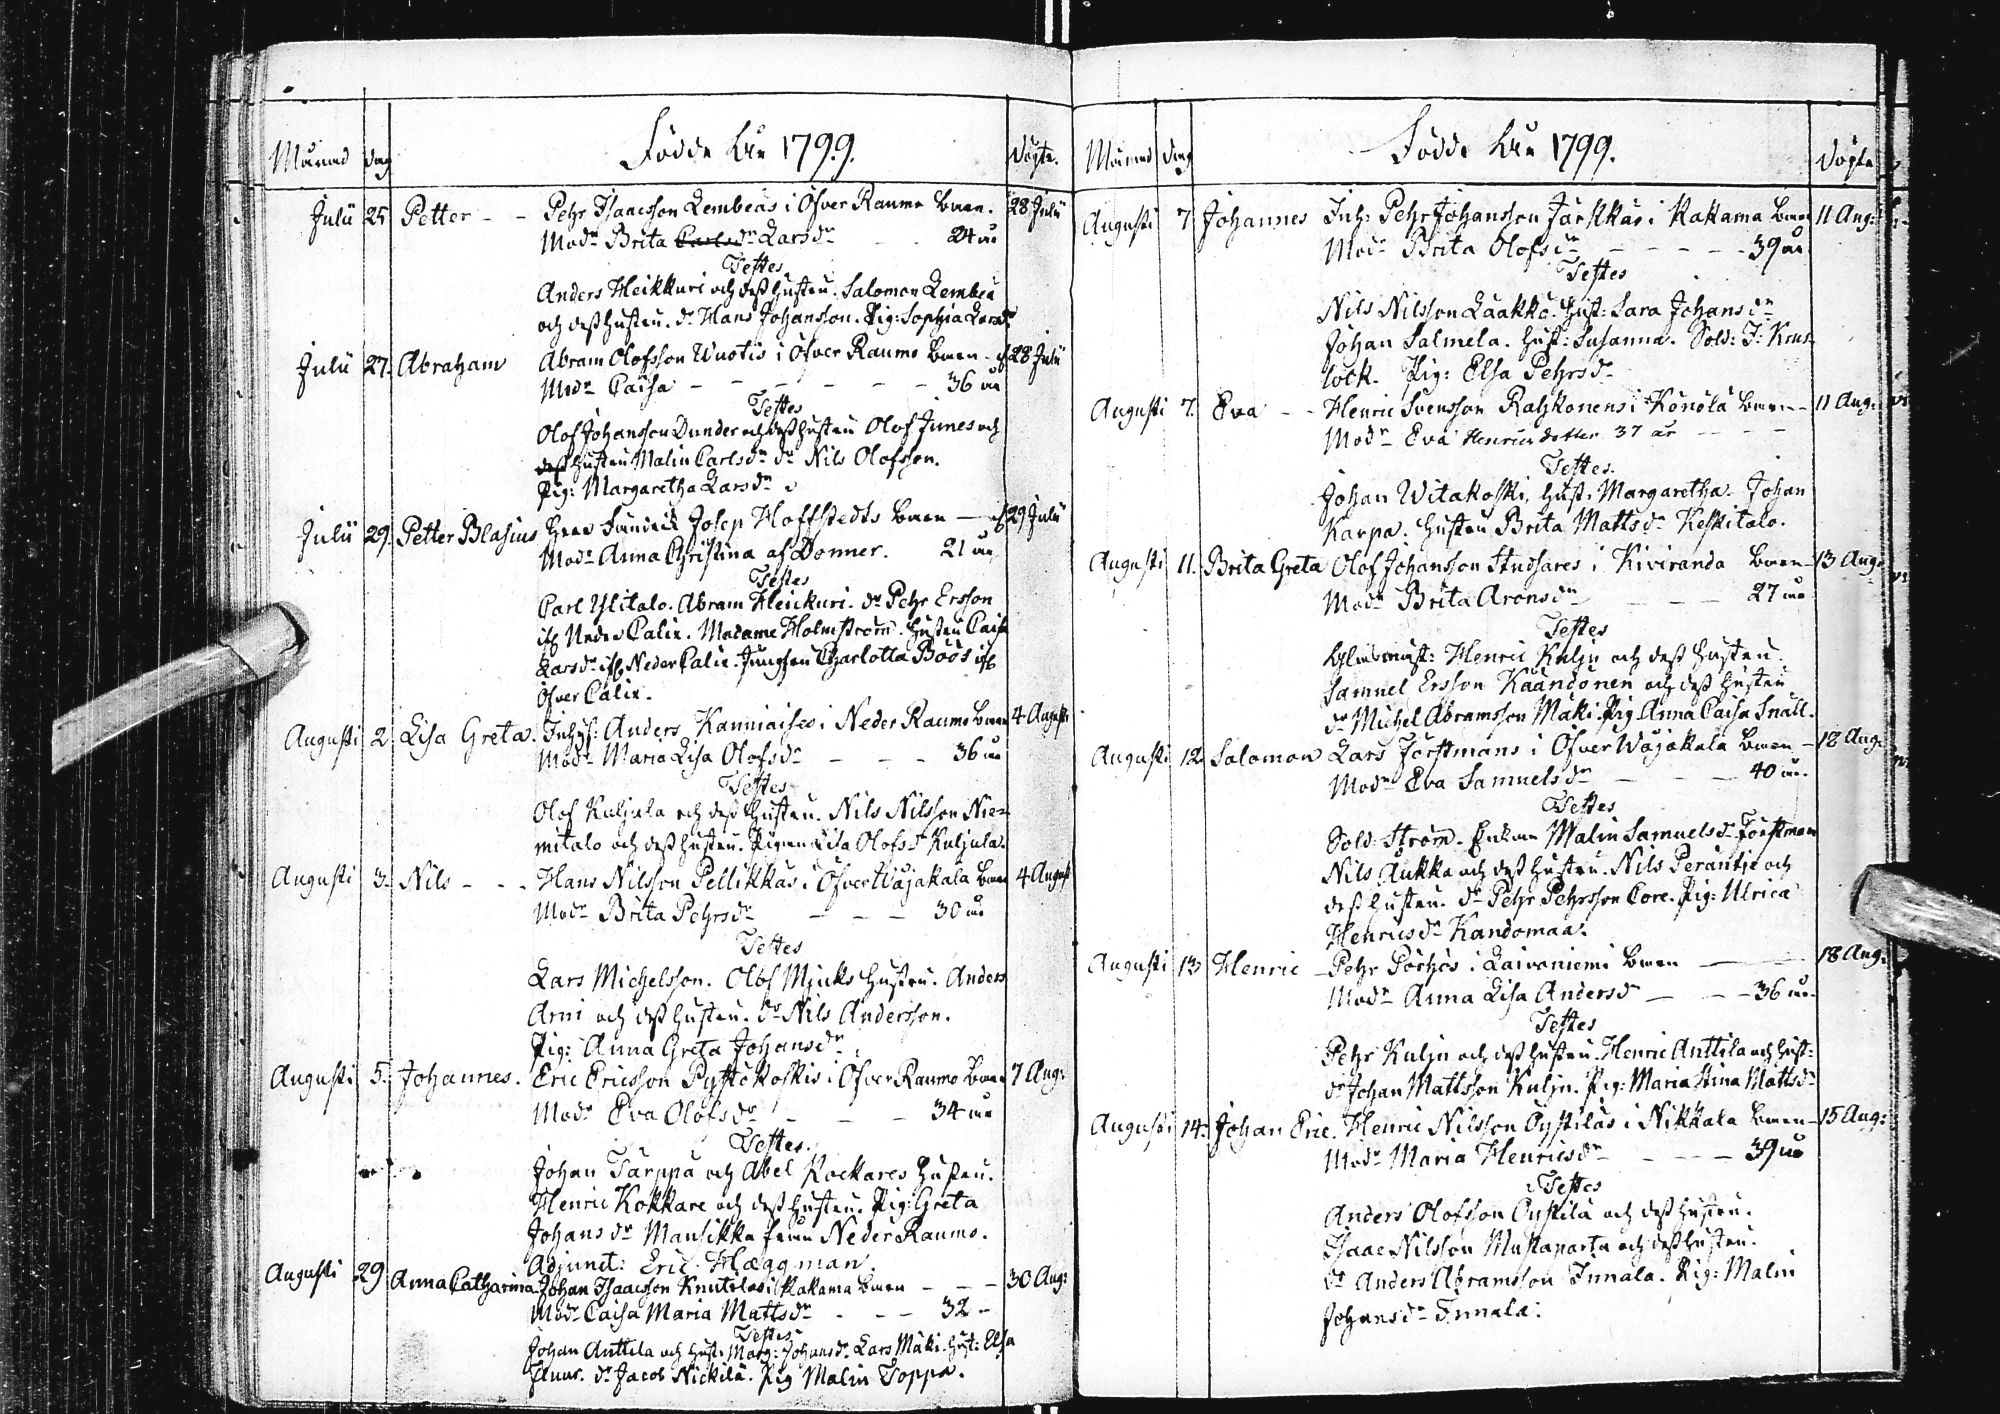 Födde År 1799.
Månad dag Döpte.
Julii 25 Petter - - Pehr Isaacsson Lembeas i Öfver Raumo barn. 28 Julii
Modr Brita Carlsdr Larsdr - - 24 år
Testes
Anders Heikkuri och dess hustru. Salomon Lembea
och dess hustru. dr Hans Johansson. Pig: Sophia Larsdr
Julii 27. Abraham Abram Olofsson Wuotis i Öfver Raumo barn - 28 Julii
Modr Caisa - - - - - - 36 år
Testes
Olof Johansson Dunder och dess hustru Olof Junes och
dess hustru Malin Carlsdr dr Nils Olofsson.
Pig: Margaretha Larsdr
Julii 29. Petter Blasius Herr Josep Hoffstedts barn — 29 Julii
Modr Anna Christina af Donner. 21 år
Testes
Carl Ylitalo. Abram Heickuri. dr Pehr Ersson
ifr Neder Calix. Madame Holmström. Hustru Caisa
Larsdr ifr Neder Calix. Jungfru Charlotta Boos ifr
Öfver Calix.
Augusti 2 Lisa Greta. Inhys: Anders Kanniaises i Neder Raumo barn 4 Augusti
Modr Maria Lisa Olofsdr - - - 36 år
Testes
Olof Kuljula och dess hustru. Nils Nilsson Nie-
mitalo och dess hustru. Pigan Lisa Olofsdr Kuljula.
Augusti 3. Nils - - - Hans Nilsson Pellikkas i Öfver Wojakala barn 4 August
Modr Brita Pehrsdr - - - 30 år
Testes
Lars Michelsson. Olof Mjuks hustru. Anders
Arni och dess hustru. dr Nils Andersson.
Pig: Anna Greta Johansdr
Augusti 5. Johannes. Eric Ericsson Pyssökoskis i Öfver Raumo barn 7 Aug:
Modr Eva Olofsdr - - - 34 år
Testes.
Johan Tarppa och Abel Kockares hustru.
Henric Kokkare och dess hustru. Pig: Greta
Johansdr Mansikka från Neder Raumo.
Adjunct: Eric Hæggman.
Augusti 29 Anna Catharina Johan Isaacsson Knutilas i Kakama barn - - - 30 Aug:
Modr Caisa Maria Mattsdr - - - 32 -
Testes
Johan Anttila och hust: Marg: Johansdr. Lars Mäki. hust: Elsa
dr Jacob Nickilä. Pig Malin Toppa.
Födde År 1799.
Månad dag Döpte
Augusti 7 Johannes Inh: Pehr Johansson Jäskkäs i Kakama barn 11 Aug:
Modr Brita Olofsdr - - - - - 39 år.
Testes
Nils Nilsson Laakko. Hust: Sara Johansdr
Johan Salmela. Hust: Susanna. Sold: J: Krus-
lock. Pig: Elsa Pehrsdr
Augusti 7. Eva - - Henric Svensson Rahkonens i Könölä barn - 11 Aug:
Modr Eva Henricsdotter 37 år - - -
Testes.
Johan Witakoski, hust. Margaretha. Johan
Karpa. hustru Brita Mattsdr Keskitalo.
Augusti 11. Brita Greta Olof Johansson Studsares i Kiviranda barn - 13 Aug:
Modr Brita Aronsdr - - - 27 år.
Testes
Henric Kulju och dess hustru.
Samuel Ersson Kaandonen och dess hustru
dr Michel Abramsson Mäki. Pig Anna Caisa Snäll.
Augusti 12. Salomon Lars Förstmans i Öfver Wojakala barn - 18 Aug:
Modr Eva Samuelsdr - - - 40 år.
Testes
Sold: Ström. Enkan Malin Samuelsdr Förstman
Nils Aukka och dess hustru. Nils Perantie och
dess hustru. dr Pehr Pehrsson Core. Pig: Ulrica
Henricsdr Kandomaa.
Augusti 13 Henric Pehr Pörhös i Laivaniemi barn — 18 Aug:
Modr Anna Lisa Andersdr - - - 36 år.
Testes
Pehr Kulju och dess hustru. Henric Anttila och hust:
dr Johan Mattsson Kulju. Pig: Maria Stina Mattsdr
Augusti 14. Johan Eric. Henric Nilsson Oystilas i Nikkala barn - 15 Aug:
Modr Maria Henricsdr - - - 39 år
Testes
Anders Olofsson Oystila och dess hustru.
Isaac Nilsson Mustaparta och dess hustru.
dr Anders Abramsson Innala. Pig: Malin
Johansdr Innala.